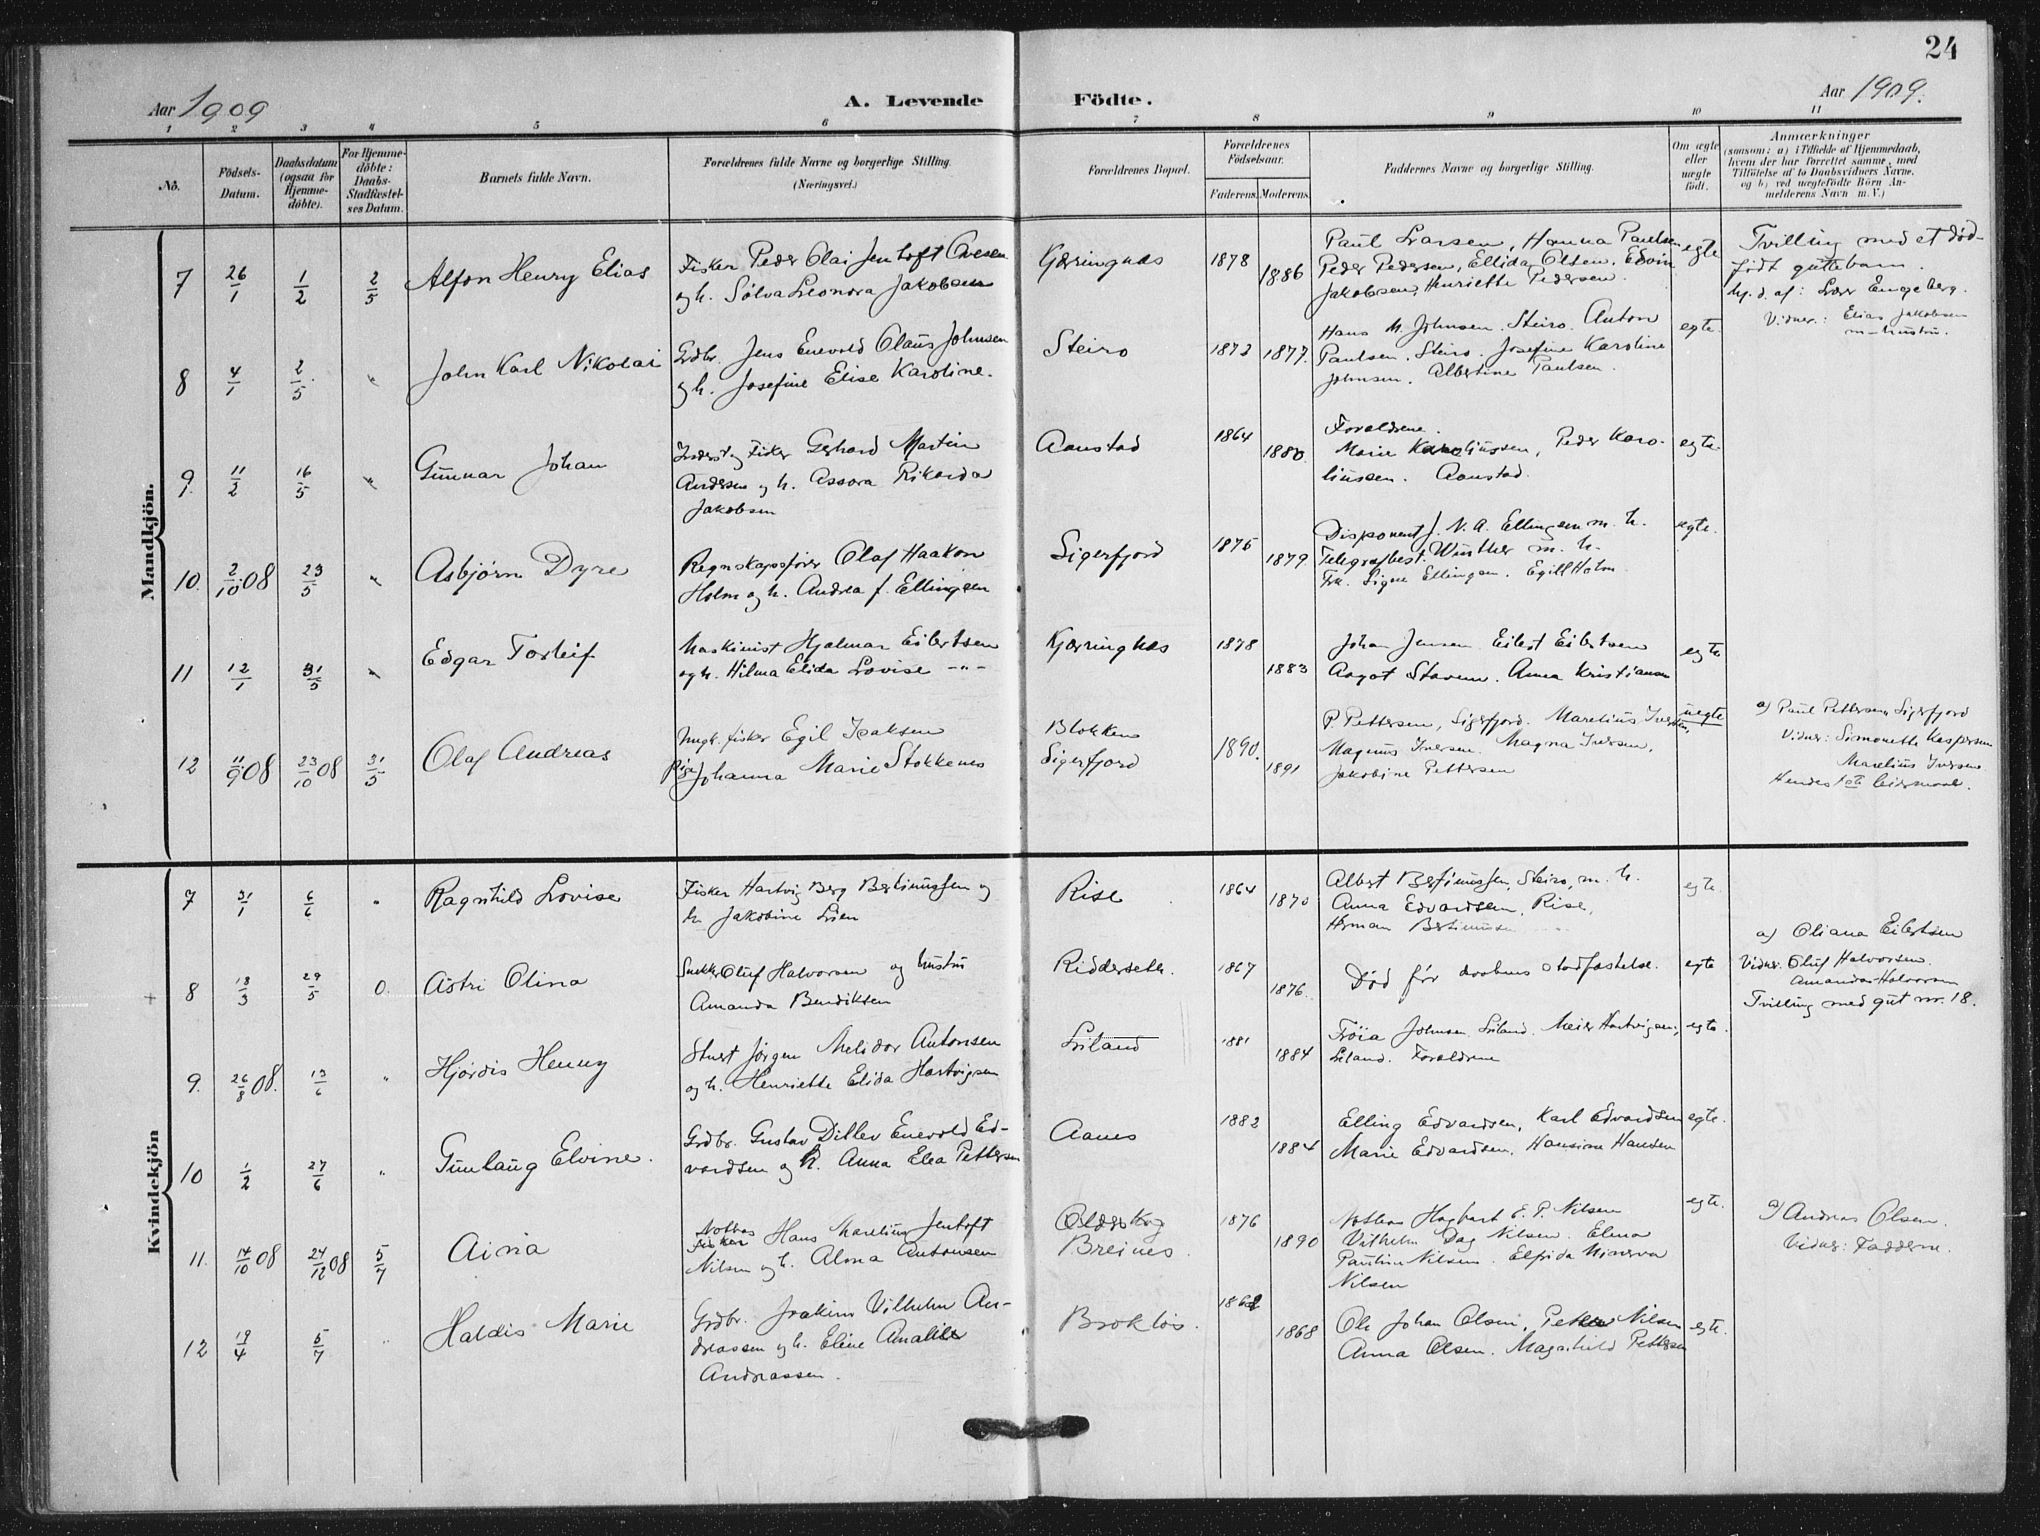 24
Aar 1909
A. Levende Födte.
Aar 1909.
1 2 3 4 5 6 7 8 9 10 11
No.
Födsels-
Datum.
Daabsdatum
(ogsaa for
Hjemme-
döbte).
For Hjemme-
döbte:
Daabs-
Stadfæstel-
ses Datum.
Barnets fulde Navn.
Forældrenes fulde Navne og borgerlige Stilling.
(Næringsvei.)
Forældrenes Bopæl.
Forældrenes
Födselsaar.
Faderens. Moderens.
Faddernes Navne og borgerlige Stilling.
Om ægte
eller
uægte
födt.
Anmærkninger
(saasom: a) i Tilfælde af Hjemmedaab,
hvem der har forrettet samme, med
Tilföielse af to Daabsvidners Navne,
og b) ved uægtefödte Börn An-
melderens Navn m. V.)
Mandkjön.
7 26/1 1/2 2/5 Alfon Henry Elias
Fisker Peder Olai Jentoft Ovesen
og h. Sølva Leonora Jakobsen
Kjæringnes 1878 1886
Paul Larsen, Hanna Paulsen
Peder Pedersen, Ellida Olsen, Edvin
Jakobsen, Henriette Pedersen.
egte
Tvilling med et død-
født guttebarn.
hj. d. af: Lærer Engeberg.
Vidner: Elias Jakobsen
m. hustru.
8 4/1 2/5 " John Karl Nikolai
Grdbr. Jens Enevold Claus Johnsen
og h. Josefine Elise Karoline.
Steiro 1873 1877.
Hans M. Johnsen. Steiro. Anton
Paulsen. Steiro. Josefine Karoline
Johnsen. Albertine Paulsen.
egte
9 11/2 16/5 " Gunnar Johan
Inderst og Fisker Gerhard Martin
Andersen og h. Assora Rikarda
Jakobsen
Aanstad 1864 1880.
Forældrene.
Marie Karoliussen, Peder Karo-
liussen. Aanstad.
egte
10. 2/10 08 23/5 " Asbjørn Dyre
Regnskapsfører Olaf Haakon
Holm og h. Andrea f. Ellingsen
Sigerfjord 1875 1879
Disponent J. N. A. Ellingsen m. h.
Telegrafbest. Winther m. h.
Frk. Signe Ellingsen. Egill Holm
egte.
11 12/1 31/5 " Edgar Torleif
Maskinist Hjalmar Eilertsen
og h. Hilma Elida Lovise —"—
Kjæringnes 1878 1883
Johan Jensen Eilert Eilertsen
Aagot Stavem. Anna Kristiansen
egte
12 11/9 08 23/10 08 31/5 Olaf Andreas
Ungk. fisker Egil Isaksen
Pige Johanna Marie Stokkenes
Blokken
Sigerfjord
1890. 1891
P. Pettersen, Sigerfjord. Marelius Iversen,
Magnus Iversen. Magna Iversen,
Jakobine Pettersen
uegte
a) Paul Pettersen Sigerfjord
Vidner: Simonette Kaspersen
Marelius Iversen
Hendes 1ste leiermaal.
Kvindekjön
7 31/1 6/6 " Ragnhild Lovise
Fisker Hartvig Berg Bertinussen og
h. Jakobine Lien
Rise 1864 1870
Albert Bertinussen, Steiro, m. h.
Anna Edvardsen, Rise,
Herman Bertinussen
egte.
+ 8 18/3 29/5 0. Astri Olina
Snekker Oluf Halvorsen og hustru
Amanda Bendiksen
Ridderseth. 1867 1876.
Død før daabens stadfæstelse.
egte
a) Oliana Eilertsen
Vidner: Oluf Halvorsen.
Amanda Halvorsen
Tvilling med gut nr. 18.
9. 26/8 08. 13/6 " Hjørdis Henny
Stuert Jørgen Melidor Antonsen
og h. Henriette Elida Hartvigsen
Liland 1881 1884
Frøia Johnsen Liland. Meier Hartvigsen,
Liland. Forældrene
egte.
10 1/2 27/6 " Gunlaug Elvine.
Grdbr. Gustav Ditlev Enevold Ed-
vardsen og h. Anna Elea Pettersen
Aanes 1882 1884
Elling Edvardsen, Karl Edvardsen
Marie Edvardsen. Hansine Hansen
egte.
11. 14/10 08 24/12 08 5/7 Aina
Notbas
Fisker Hans Marelius Jentoft
Nilsen og h. Alma Antonsen
Olderskog
Breines.
1876 1890
Notbas Hagbart E. P. Nilsen
Vilhelm Dag Nilsen. Elena
Pauline Nilsen. Elfrida Minerva
Nilsen
egte.
a) Andreas Olsen.
Vidner: Fadderne.
12 19/4 5/7 " Haldis Marie
Grdbr. Joakim Vilhelm An-
dreassen og h. Eline Amalie
Andreassen.
Brokløs. 1868
Ole Johan Olsen, Petter Nilsen
Anna Olsen. Magnhild Pettersen
egte.